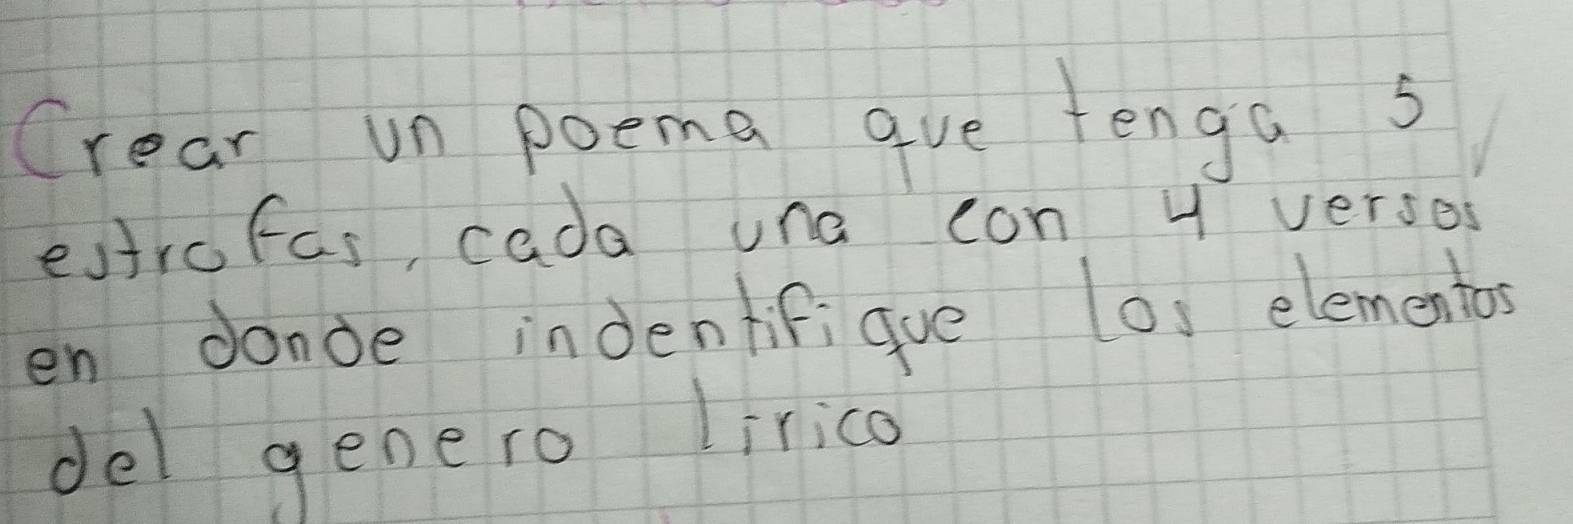 Crear un poema que tenga 5
estrofas, cada una con 4 versos
en donde indentifique los elementos
del genero lirico